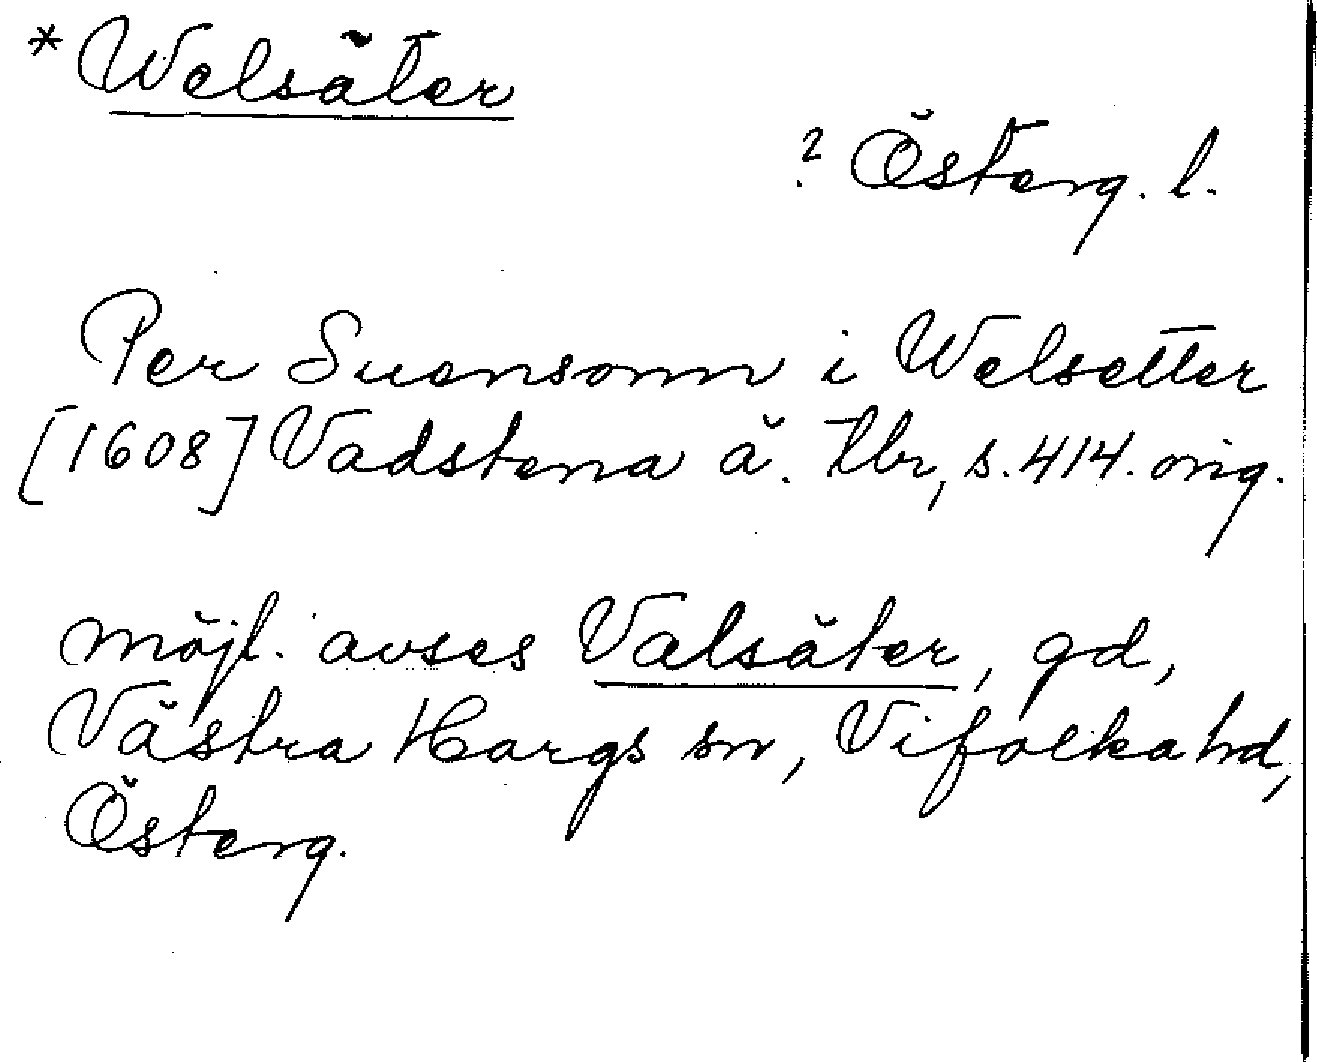 *Welsäter
? Österg. l.
Per Suensonn i Welsetter
[1608] Vadstena ä. tbr, s. 414. orig.
möjl. avses Valsäter, gd,
Västra Hargs sn, Vifolka hd,
Österg.